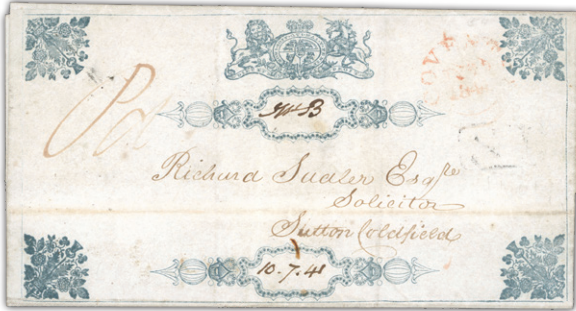 Pd
Richard Sadler Esqre
Solicitor
Sutton Coldfield
10.7.41